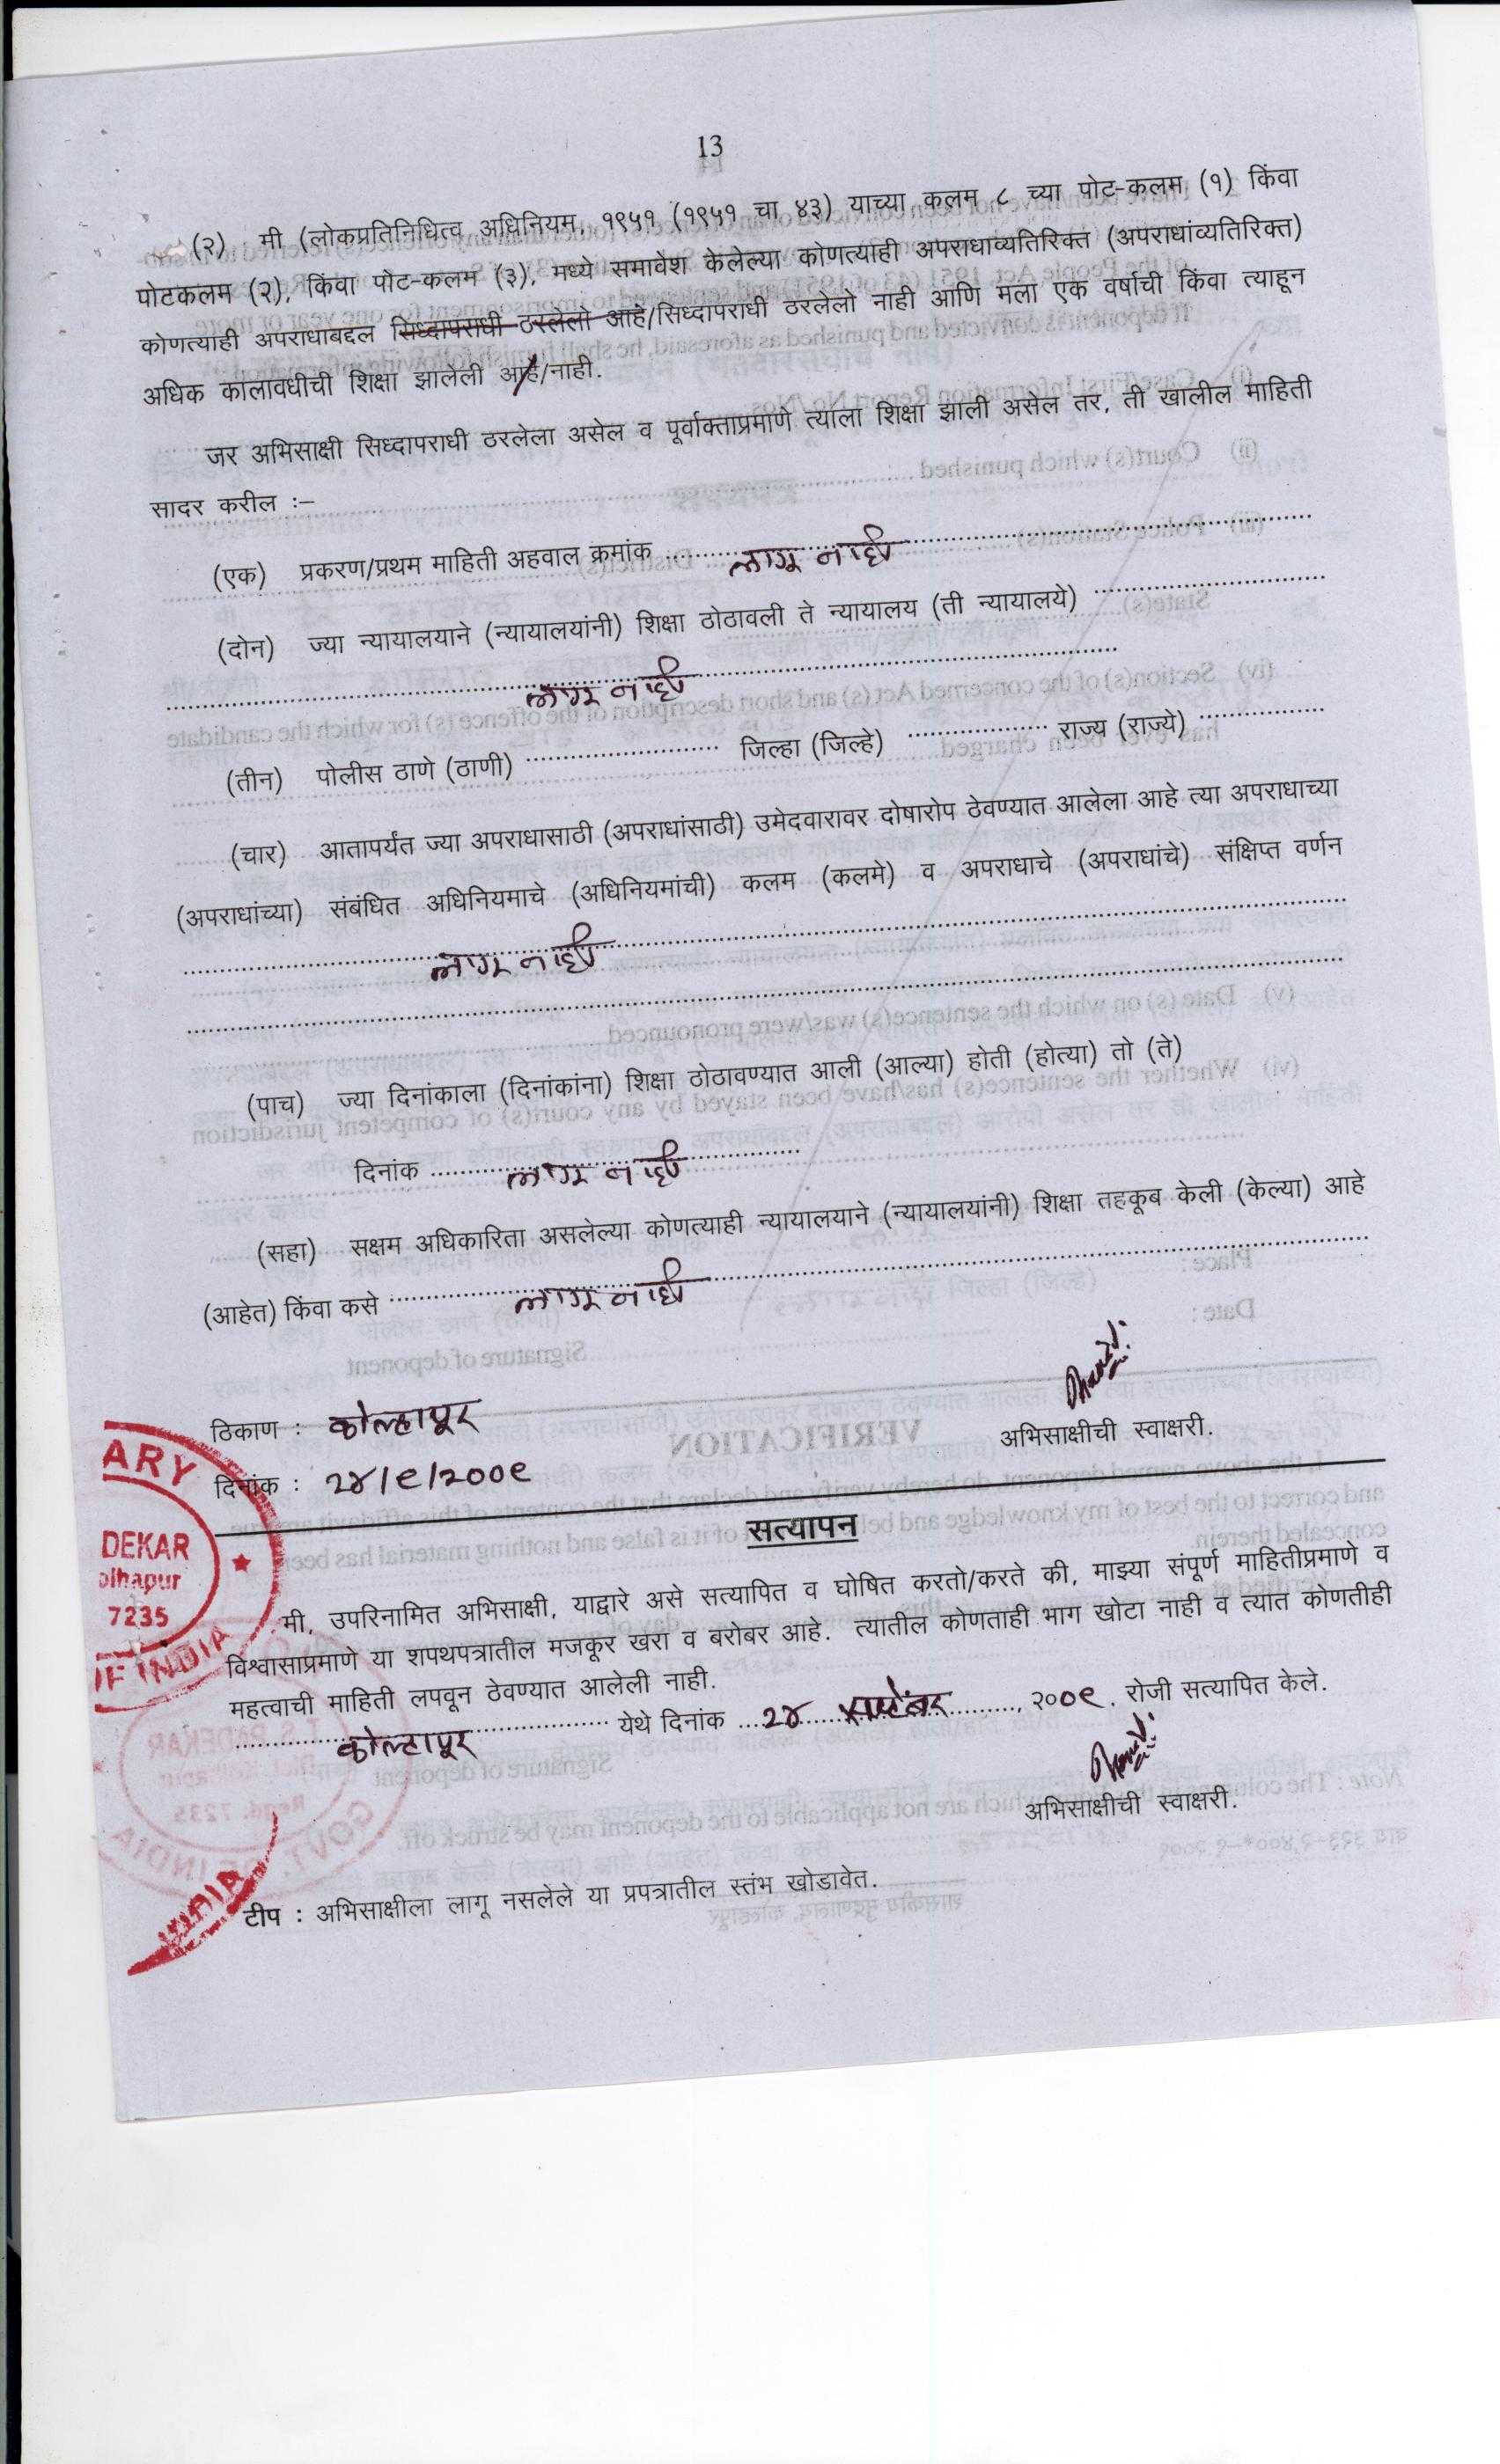 13
(२) मी (लोकप्रतिनिधित्व अधिनियम, १९५१ (१९५१ चा ४३) याच्या कलम ८ च्या पोट-कलम (१) किंवा
पोटकलम (२), किंवा पोट-कलम (३), मध्ये समावेश केलेल्या कोणत्याही अपराधाव्यतिरिक्त (अपराधांव्यतिरिक्त)
कोणत्याही अपराधाबद्दल सिध्दापराधी ठरलेलो आहे/सिध्दापराधी ठरलेलो नाही आणि मला एक वर्षाची किंवा त्याहून
अधिक कालावधीची शिक्षा झालेली आहे/नाही.
जर अभिसाक्षी सिध्दापराधी ठरलेला असेल व पूर्वाक्ताप्रमाणे त्याला शिक्षा झाली असेल तर, ती खालील माहिती
सादर करील :–
(एक) प्रकरण/प्रथम माहिती अहवाल क्रमांक लागू नाही
(दोन) ज्या न्यायालयाने (न्यायालयांनी) शिक्षा ठोठावली ते न्यायालय (ती न्यायालये)
लागू नाही
(तीन) पोलीस ठाणे (ठाणी) जिल्हा (जिल्हे) राज्य (राज्ये)
(चार) आतापर्यंत ज्या अपराधासाठी (अपराधांसाठी) उमेदवारावर दोषारोप ठेवण्यात आलेला आहे त्या अपराधाच्या
(अपराधांच्या) संबंधित अधिनियमाचे (अधिनियमांची) कलम (कलमे) व अपराधाचे (अपराधांचे) संक्षिप्त वर्णन
लागू नाही
(पाच) ज्या दिनांकाला (दिनांकांना) शिक्षा ठोठावण्यात आली (आल्या) होती (होत्या) तो (ते)
दिनांक लागू नाही
(सहा) सक्षम अधिकारिता असलेल्या कोणत्याही न्यायालयाने (न्यायालयांनी) शिक्षा तहकूब केली (केल्या) आहे
(आहेत) किंवा कसे लागू नाही
ठिकाण : कोल्हापूर
अभिसाक्षीची स्वाक्षरी.
दिनांक : २४/९/२००९
ARY
DEKAR
olhapur
7235
OF INDIA
सत्यापन
मी, उपरिनामित अभिसाक्षी, याद्वारे असे सत्यापित व घोषित करतो/करते की, माझ्या संपूर्ण माहितीप्रमाणे व
विश्वासाप्रमाणे या शपथपत्रातील मजकूर खरा व बरोबर आहे. त्यातील कोणताही भाग खोटा नाही व त्यात कोणतीही
महत्वाची माहिती लपवून ठेवण्यात आलेली नाही.
कोल्हापूर येथे दिनांक २४ सप्टेंबर, २००९. रोजी सत्यापित केले.
अभिसाक्षीची स्वाक्षरी.
INDIA
टीप : अभिसाक्षीला लागू नसलेले या प्रपत्रातील स्तंभ खोडावेत.